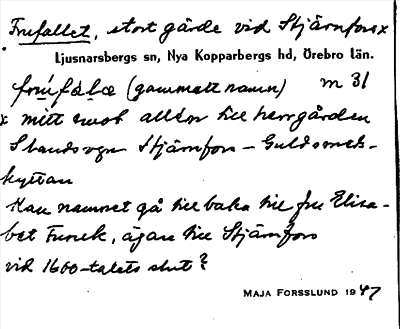 Frufallet, stort gärde vid Stjärnfors x
Ljusnarsbergs sn, Nya Kopparbergs hd, Örebro län.
(gammalt namn) m 31
x mitt emot allén till herrgården
Stavdsvgn Stjärnfors – Guldsmeds-
hyttan
Kan namnet gå tillbaka till fru Elisa-
bet Funck, ägare till Stjärnfors
vid 1600-talets slut?
MAJA FORSSLUND 1947